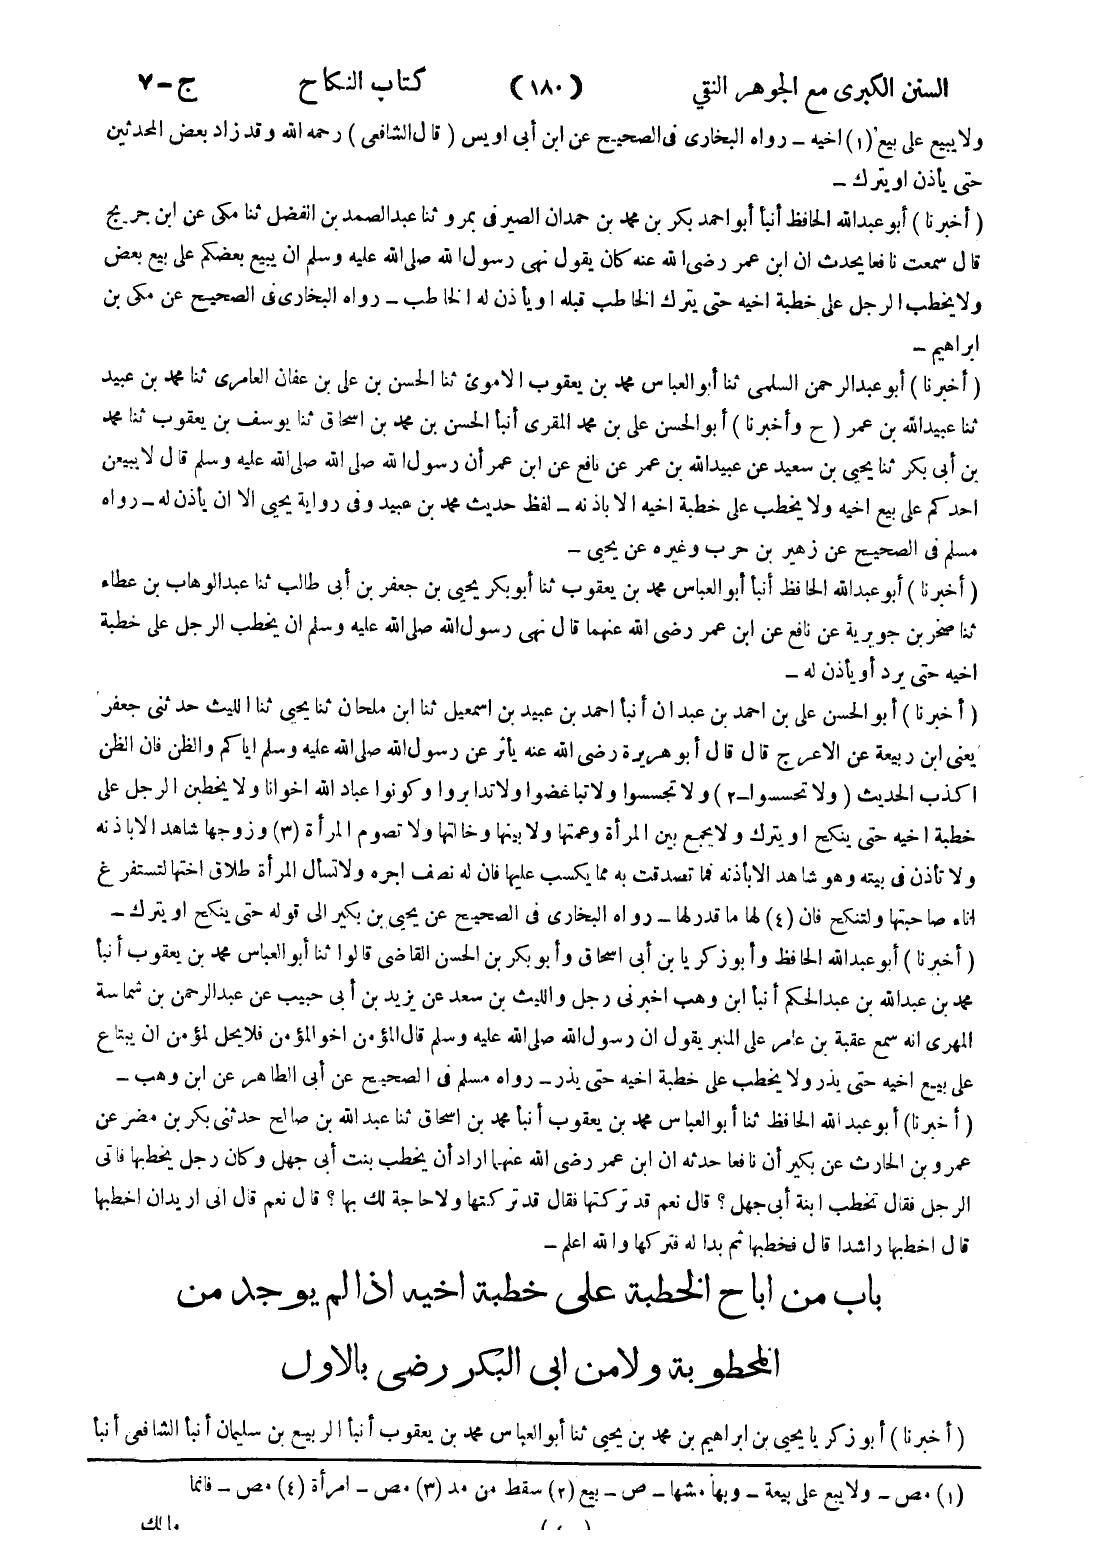 السنن الكبرى مع الجوهر النقي (١٨٠) كتاب النكاح ج-٧
ولا يبيع على بيع (١) اخيه - رواه البخارى فى الصحيح عن ابن أبى اويس (قال الشافعى) رحمه الله وقد زاد بعض المحدثين
حتى يأذن او يترك -
(أخبرنا) أبو عبدالله الحافظ أنبأ أبو احمد بكر بن محمد بن حمدان الصيرفى بمرو ثنا عبدالصمد بن الفضل ثنا مكى عن ابن جريج
قال سمعت نافعا يحدث ان ابن عمر رضى الله عنه كان يقول نهى رسول الله صلى الله عليه وسلم ان يبيع بعضكم على بيع بعض
ولا يخطب الرجل على خطبة اخيه حتى يترك الخاطب قبله او يأذن له الخاطب - رواه البخارى فى الصحيح عن مكى بن
ابراهيم -
(أخبرنا) أبو عبدالرحمن السلمى ثنا أبو العباس محمد بن يعقوب الاموى ثنا الحسن بن على بن عفان العامرى ثنا محمد بن عبيد
ثنا عبيدالله بن عمر (ح وأخبرنا) أبو الحسن على بن محمد المقرى أنبأ الحسن بن محمد بن اسحاق ثنا يوسف بن يعقوب ثنا محمد
بن أبى بكر ثنا يحيى بن سعيد عن عبيدالله بن عمر عن نافع عن ابن عمر أن رسول الله صلى الله عليه وسلم قال لا يبيعن
احدكم على بيع اخيه ولا يخطب على خطبة اخيه الا باذنه - لفظ حديث محمد بن عبيد وفى رواية يحيى الا ان يأذن له - رواه
مسلم فى الصحيح عن زهير بن حرب وغيره عن يحيى -
(أخبرنا) أبو عبدالله الحافظ أنبأ أبو العباس محمد بن يعقوب ثنا أبو بكر يحيى بن جعفر بن أبى طالب ثنا عبدالوهاب بن عطاء
ثنا صخر بن جويرية عن نافع عن ابن عمر رضى الله عنهما قال نهى رسول الله صلى الله عليه وسلم ان يخطب الرجل على خطبة
اخيه حتى يرد أو يأذن له -
(أخبرنا) أبو الحسن على بن احمد بن عبدان أنبأ احمد بن عبيد بن اسمعيل ثنا ابن ملحان ثنا يحيى ثنا الليث حدثنى جعفر
يعنى ابن ربيعة عن الاعرج قال قال أبو هريرة رضى الله عنه يأثر عن رسول الله صلى الله عليه وسلم اياكم والظن فان الظن
اكذب الحديث (ولا تحسسوا-٢) ولا تجسسوا ولا تباغضوا ولا تدابروا وكونوا عباد الله اخوانا ولا يخطبن الرجل على
خطبة اخيه حتى ينكح او يترك ولا يجمع بين المرأة وعمتها ولا بينها وخالتها ولا تصوم المرأة (٣) وزوجها شاهد الا باذنه
ولا تأذن فى بيته وهو شاهد الا بأذنه فما تصدقت به مما يكسب عليها فان له نصف اجره ولا تسأل المرأة طلاق اختها لتستفرغ
اناء صاحبتها ولتنكح فان (٤) لها ما قدر لها - رواه البخارى فى الصحيح عن يحيى بن بكير الى قوله حتى ينكح او يترك -
(أخبرنا) أبو عبدالله الحافظ وأبو زكريا بن أبى اسحاق وأبو بكر بن الحسن القاضى قالوا ثنا أبو العباس محمد بن يعقوب أنبأ
محمد بن عبدالله بن عبدالحكم أنبأ ابن وهب اخبرنى رجل والليث بن سعد عن يزيد بن أبى حبيب عن عبدالرحمن بن شماسة
المهرى انه سمع عقبة بن عامر على المنبر يقول ان رسول الله صلى الله عليه وسلم قال المؤمن اخو المؤمن فلا يحل لمؤمن ان يبتاع
على بيع اخيه حتى يذر ولا يخطب على خطبة اخيه حتى يذر - رواه مسلم فى الصحيح عن أبى الطاهر عن ابن وهب -
(أخبرنا) أبو عبدالله الحافظ ثنا أبو العباس محمد بن يعقوب أنبأ محمد بن اسحاق ثنا عبدالله بن صالح حدثنى بكر بن مضر عن
عمرو بن الحارث عن بكير أن نافعا حدثه ان ابن عمر رضى الله عنهما اراد أن يخطب بنت أبى جهل وكان رجل يخطبها فاتى
الرجل فقال تخطب ابنة أبى جهل؟ قال نعم قد تركتها فقال قد تركتها ولا حاجة لك بها؟ قال نعم قال انى اريد ان اخطبها
قال اخطبها راشدا قال فخطبها ثم بدا له فتركها والله اعلم -
باب من اباح الخطبة على خطبة اخيه اذا لم يوجد من
المخطوبة ولا من ابى البكر رضى بالاول
(أخبرنا) أبو زكريا يحيى بن ابراهيم بن محمد بن يحيى ثنا أبو العباس محمد بن يعقوب أنبأ الربيع بن سليمان أنبأ الشافعى أنبأ
(١) مص - ولا يبع على بيعة - وبها مشها - ص - بيع (٢) سقط من مد (٣) مص - امرأة (٤) مص - فانما
مالك